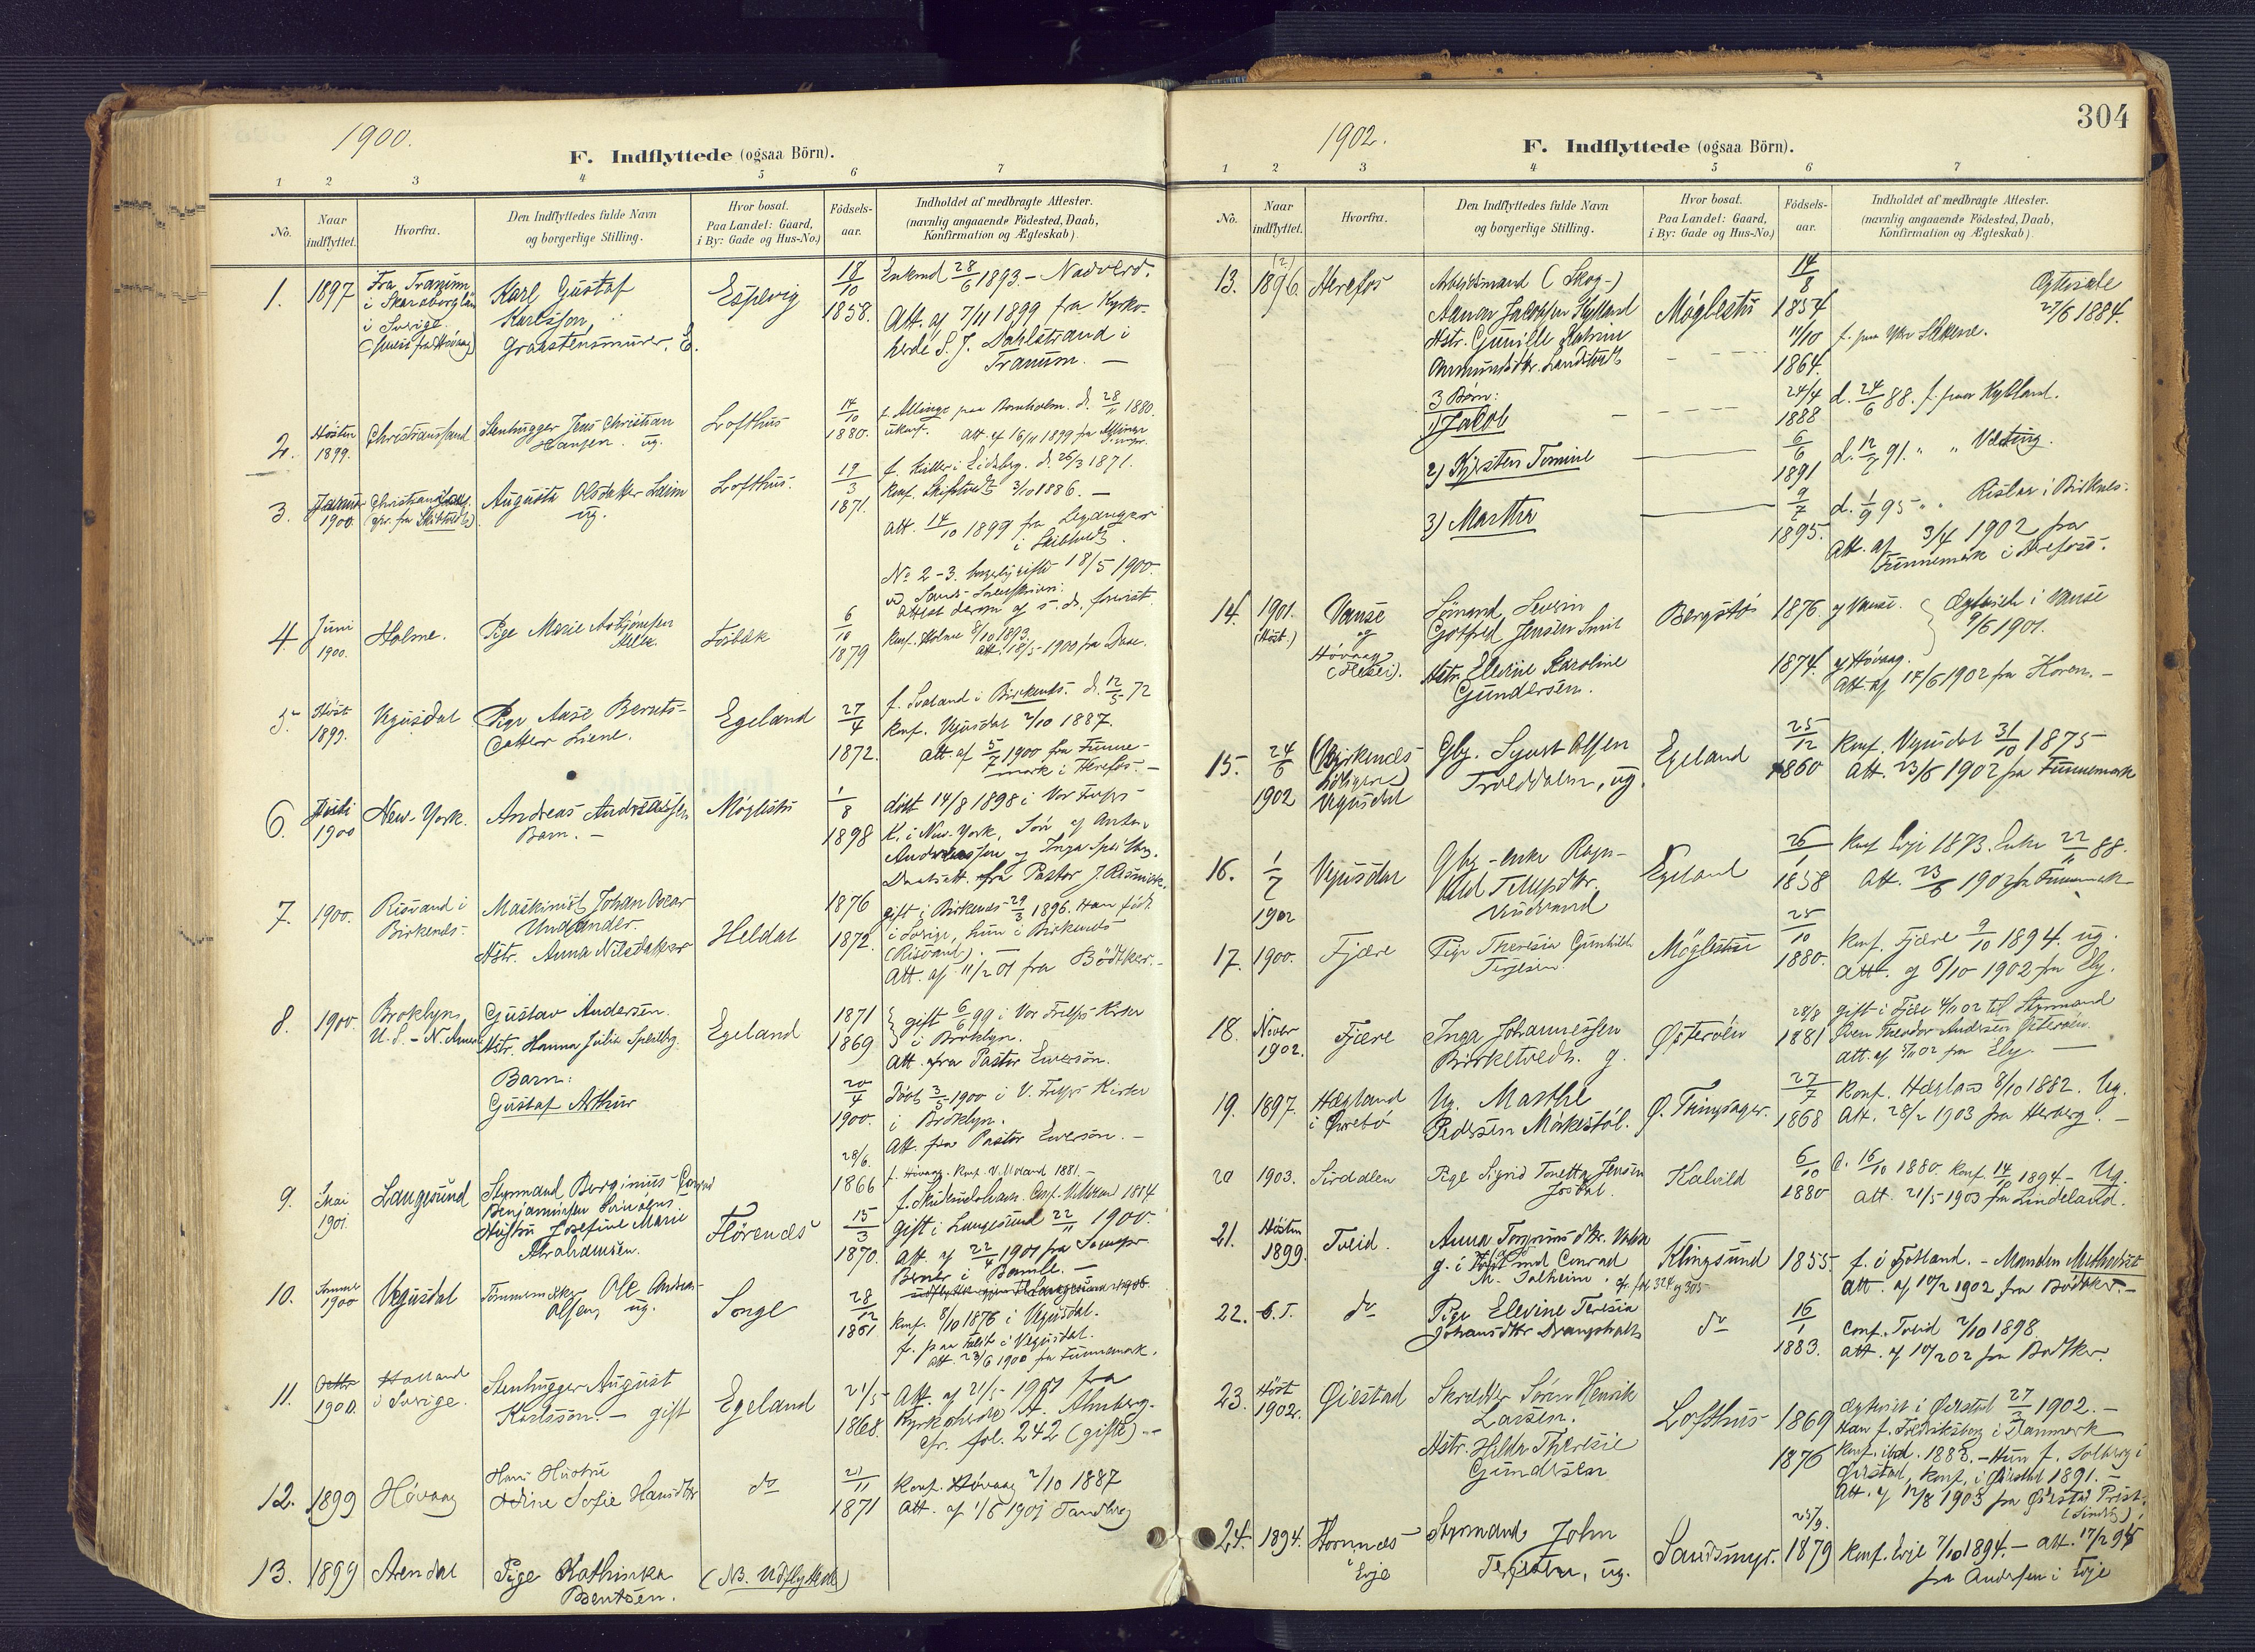 1900.
F. Indflyttede (ogsaa Börn).
1 2 3 4 5 6 7
No.
Naar indflyttet.
Hvorfra.
Den Indflyttedes fulde Navn
og borgerlige Stilling.
Hvor bosat.
Paa Landet: Gaard,
i By: Gade og Hus-No.)
Födsels-
aar.
Indholdet af medbragte Attester.
(navnlig angaaende Födested, Daab,
Konfirmation og Ægteskab).
1. 1897 Fra Tranum
i Skaraborglän
i Sverige.
Karl Gustaf
Karlsson,
Graastensmurer, E.
Espevig
18/10 1858.
Enkemd 28/6 1893 - Nadverd.
Att. af 7/11 1899 fra Kyrko-
herde S. J. Dahlstrand i
Tranum. -
2. Hösten 1899. Christianssand
Stenhugger Jens Christian
Hansen. ug.
Lofthus
14/10 1880.
f. Allinge paa Bornholm. d. 28/11 1880.
ukonf. Att. af 16/11 1899 fra Allinge
3. Januar 1900. Christianssand
(opr. fra Skibtvedt)
Augusta Olsdatter
ug.
Lofthus.
19/3 1871.
d. 26/3 1871.
konf. Skibtvedt 3/10 1886. -
att. 14/10 1899 fra
i Skibtvedt.
No 2-3. borgerlig gifte 18/5 1900.
Attest derom af s. d. forevist.
4 Juni 1900. Holme.
Pige Marie Asbjörnsen
6/10 1879
konf. Holme 8/10 1893.
att. 18/5 1900 fra
5 Höst 1899. Vegusdal
Pige Aase Bernts-
datter Liene.
Egeland
27/4 1872.
f. Svaland i Birkenes. d. 12/5 72
konf. Vegusdal 2/10 1887.
att. af 5/7 1900 fra Finne-
mark i Herefos. -
6. 1900 New-York.
Andreas Andreassen
Barn. -
Møglestu
1/8 1898
döbt 14/8 1898 i Vor Frelsers
K. i New-York, Sön af Anton
Andreassen og Inga
Daabsatt. fra Pastor J.
7. 1900. Risvand i
Birkenes.
Maskinist Johan Oscar
Undander.
Hstr. Anna Nilsdatter
Heldal
1876
1872.
gift i Birkenes 29/3 1896. Han född
i Sverige, hun i Birkenes
(Risvand).
Att. af 11/2 01 fra Bödtker. -
8. 1900. Broklyn,
U. S. - N. Amerika
Gustav Andersen.
Hstr. Hanna Julia
Barn:
Gustaf Arthur
Egeland
1871
1869
20/4
1900.
gift 6/6 99 i Vor Frelsers Kirke
i Broklyn.
Att. fra Pastor Everson.
Döbt 3/5 1900 i V. Frelsers Kirke
i Broklyn.
Att. fra Pastor Everson. -
9. Mai 1901. Langesund
Styrmand Berginius
Benjaminsen
Hustru Josefine Marie
Abrahamsen.
Flørenes
28/6. 1866
15/3 1870.
f. Høvaag. Konf. V. Moland 1881. -
f. Skudeneshavn. Conf. 1884
gift i Langesund 22/11 1900.
Att. af 22/4 1901 fra
i Bamle. -
10. Sommer 1900 Vegusdal
Tömmermd. Ole Andreas
Olsen, ug.
Songe
28/12 1861
konf. 8/10 1876 i Vegusdal.
f. paa i Vegusdal.
att. 23/6 1900 fra Finnemark.
11. 1900. Halland
i Sverige.
Stenhugger August
Karlsson. - gift
Egeland
21/5 1868.
Att. af 21/5 1901 fra
Kyrkoherde A. Almberg.
cfr. fol. 242 (gifte). -
12. 1899 Høvaag
Hans Hustru
Odine Sofie Hansdtr
do
21/11 1871
Konf. Høvaag 2/10 1887
Att. af 1/5 1901 Tandberg
13. 1899 Arendal
Pige Kathinka
Bentsen.
(NB. Udflyttede)
304
1902.
F. Indflyttede (ogsaa Börn).
1 2 3 4 5 6 7
No.
Naar indflyttet.
Hvorfra.
Den Indflyttedes fulde Navn
og borgerlige Stilling.
Hvor bosat.
Paa Landet: Gaard,
i By: Gade og Hus-No.)
Födsels-
aar.
Indholdet af medbragte Attester.
(navnlig angaaende Födested, Daab,
Konfirmation og Ægteskab).
13. 1896. (?) Herefos
Arbeidsmand (Skog-)
Aanon Jakobsen Kylland
Hstr. Gunille Katrine
3 Börn:
1) Jakob
2) Kirsten Tomine
3) Martha
Møglestu
14/8 1854
11/10 1864.
24/4 1888
6/6 1891
9/7 1895.
Ægteviede
27/6 1884.
d. 24/6 88. f. paa Kylland.
d. 12/7 91. " "
d. 1/9 95 " " i Birknes.
Att. af 3/4 1902 fra
Finnemark i Herefoss.
14. 1901. (Høst.) Vanse
og
Høvaag
Sømand Severin
Gotfred Jensen
Hstr. Elevine Karoline
Gundersen.
Bergstø
1876
1874.
af Vanse. Ægteviede i Vanse
9/6 1901.
af Høvaag.
Att. af 17/6 1902 fra Koren. -
15. 24/6 1902 (Birkenes
tidligere)
Vegusdal
Gbg. Sjurt Olsen
Trolddalen, ug.
Egeland
25/12 1860
Konf. Vegusdal 31/10 1875
Att. 23/6 1902 fra Finnemark
16. 1/7 1902 Vegusdal
Gbg-enke Ragn-
hild Tellefsdtr.
Egeland
26/1 1858
Konf Evje 1873. Enke 22/11 88.
Att. 23/6 1902 fra Finnemark
17. 1900. Fjære
Pige Theresia Gunhild
Terjesen.
Møglestu
25/10 1880.
Konf. Fjære 9/10 1894. ug.
Att. af 6/10 1902 fra Ely.
18. Novbr 1902. Fjære
Inga Johannessen
Birketvedt. g.
Østerøen
28/8 1881
gift i Fjære 4/11 02 til Styrmand
Sven Theodor Andersen Østerøen.
att. af 5/11 02 fra Ely. -
19. 1897. Hægland
i Øvrebø
Ug. Marthe
Pedersen
Ø. Tingsager.
27/7 1868
Konf. Hægland 8/10 1882. Ug.
Att. 28/2 1903 fra Herberg. -
20 1903. Sirdalen
Pige Sigrid Tonetta Jensen
Josdal.
Kalvild
6/10 1880
d. 16/10 1880. konf. 14/10 1894. - Ug.
Att. 21/5 1903 fra Lindeland.
21. Høsten 1899. Tveid.
Anna
g. i med Conrad
M. Dalheim. cfr. fol. 324 og 305
Klingsund
1855
f. i Gjøtland. - Manden Methodist
Att. af 10/2 1902 fra Bödtker. -
22. S. T. do
Pige Elevine Teresia
Johansdtr Drangsholt
do
16/1 1883.
Conf. Tveid 2/10 1898
att. af 10/2 02 fra Bødtker.
23. Høst 1902. Øiestad
Skredder Søren Henrik
Larsen.
Hstr. Hilda Theresie
Gundersen
Lofthus
1869
1876
Ægteviet i Øiestad 27/3 1902. -
Han f. Fredriksborg i Danmark
Konf. ibid. 1883. - Hun f. Solberg i
Øiestad, konf. i Øiestad 1891. -
Att. af 12/8 1903 fra Øiestad Præst.
24. 1894. Hornnes
i
Evje
Styrmand John
Terjesen, ug.
Sandsmyr.
25/9. 1879
Konf. Evje 7/10 1894. - att. 17/2 95
fra Andersen i Evje